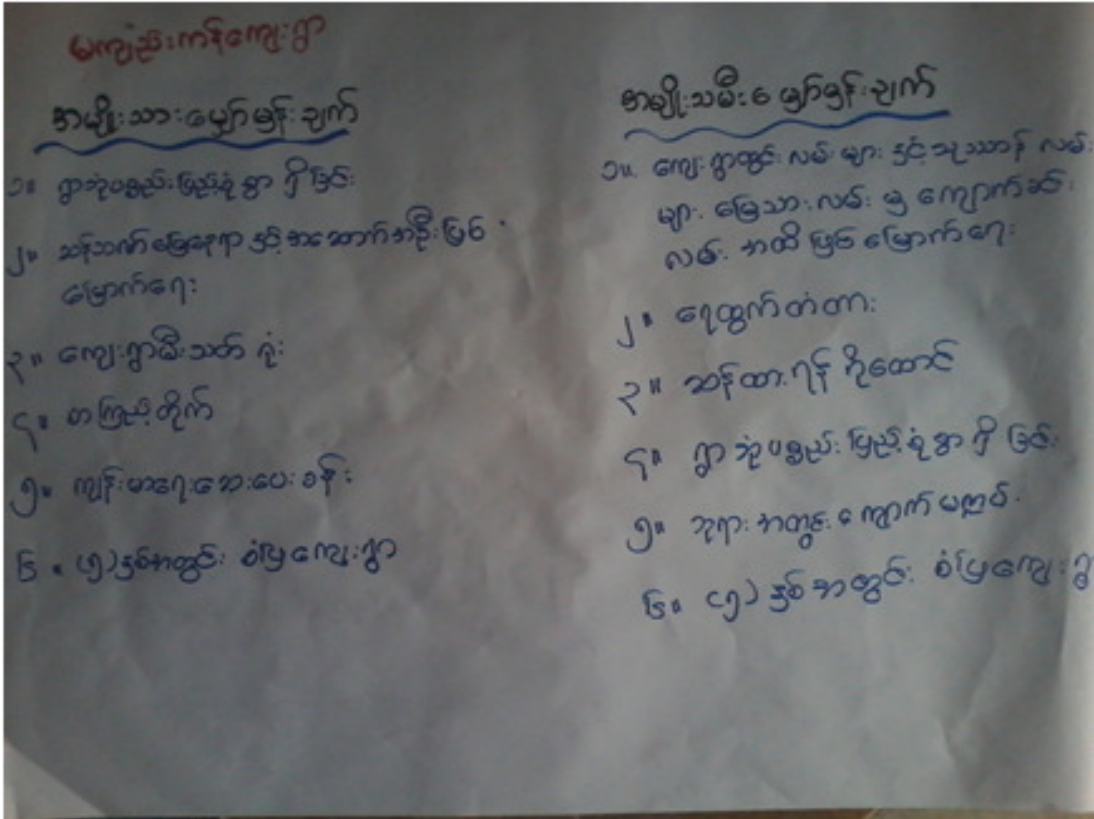 မကျည်းကန်ကျေးရွာ
အမျိုးသားမျှော်မှန်းချက်
၁။ ရွာသုံးပစ္စည်းပြည့်စုံစွာ ရှိခြင်း
၂။ သန့်သဏ် မြေနေရာ နှင့် အဆောက်အဦးဖြစ်
မြောက်ရေး
၃။ ကျေးရွာမီးသတ် ရုံး
၄။ စာကြည့်တိုက်
၅။ ကျန်းမာရေးဆေးပေးခန်း
၆။ (၅)နှစ်အတွင်း စံပြကျေးရွာ
အမျိုးသမီးမျှော်မှန်းချက်
၁။ ကျေးရွာတွင်းလမ်းများ နှင့် သုဿာန် လမ်း
များ မြေသားလမ်း မှ ကျောက်ခင်း
လမ်း အထိ ဖြစ်မြောက်ရေး
၂။ ရေထွက်တံတား
၃။ ဆန်ထားရန် ဂိုထောင်
၄။ ရွာသုံးပစ္စည်း ပြည့်စုံစွာ ရှိခြင်း
၅။ ဘုရား အတွက် ကျောက်
၆။ (၅) နှစ်အတွင်း စံပြကျေးရွာ